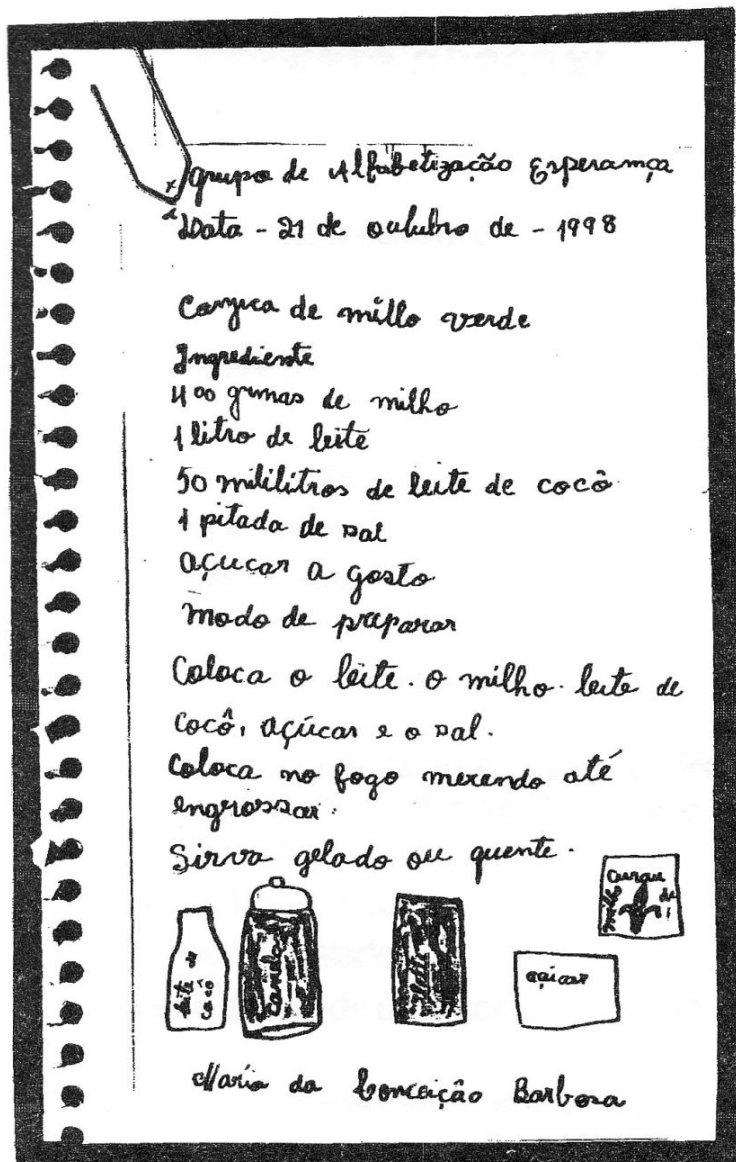 Grupo de Alfabetização Esperança
Data - 21 de outubro de - 1998
Canjica de millo verde
Ingrediente
400 gramas de milho
1 litro de leite
50 mililitros de leite de cocô
1 pitada de sal
açucar a gosto
modo de preparar
Coloca o leite. o milho. leite de
cocô, açúcar e o sal.
Coloca no fogo mexendo até
engrossar.
Sirva gelado ou quente.
Curau
milho de
leite de
cocô
Canela
leite
açúcar
Maria da Conceição Barbosa